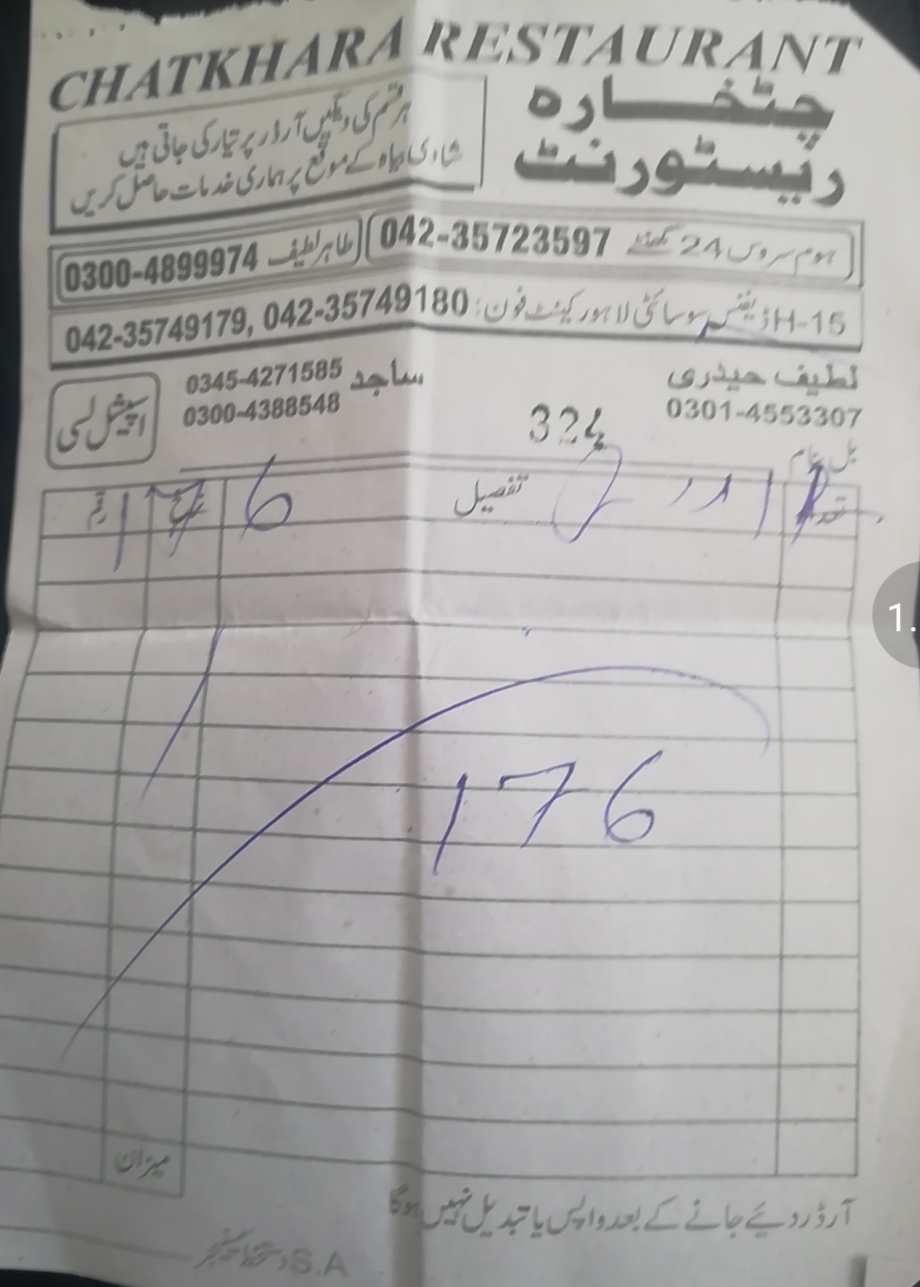 CHATKHARA RESTAURANT
چٹخارہ
ریسٹورنٹ
ہر قسم کی دیگیں آرڈر پر تیار کی جاتی ہیں
شادی بیاہ کے موقع پر ہماری خدمات حاصل کریں
ہوم سروس 24 گھنٹے 042-35723597
طاہر لطیف 0300-4899974
H-15 ڈیفنس سوسائٹی لاہور کینٹ فون: 042-35749179, 042-35749180
لطیف حیدری
0301-4553307
ساجد 0345-4271585
0300-4388548
اسپیشل لسی
324
بل بنام
تعداد تفصیل نرخ رقم
176
176
میزان
آرڈر دیئے جانے کے بعد واپس یا تبدیل نہیں ہوگا
S.A
1.